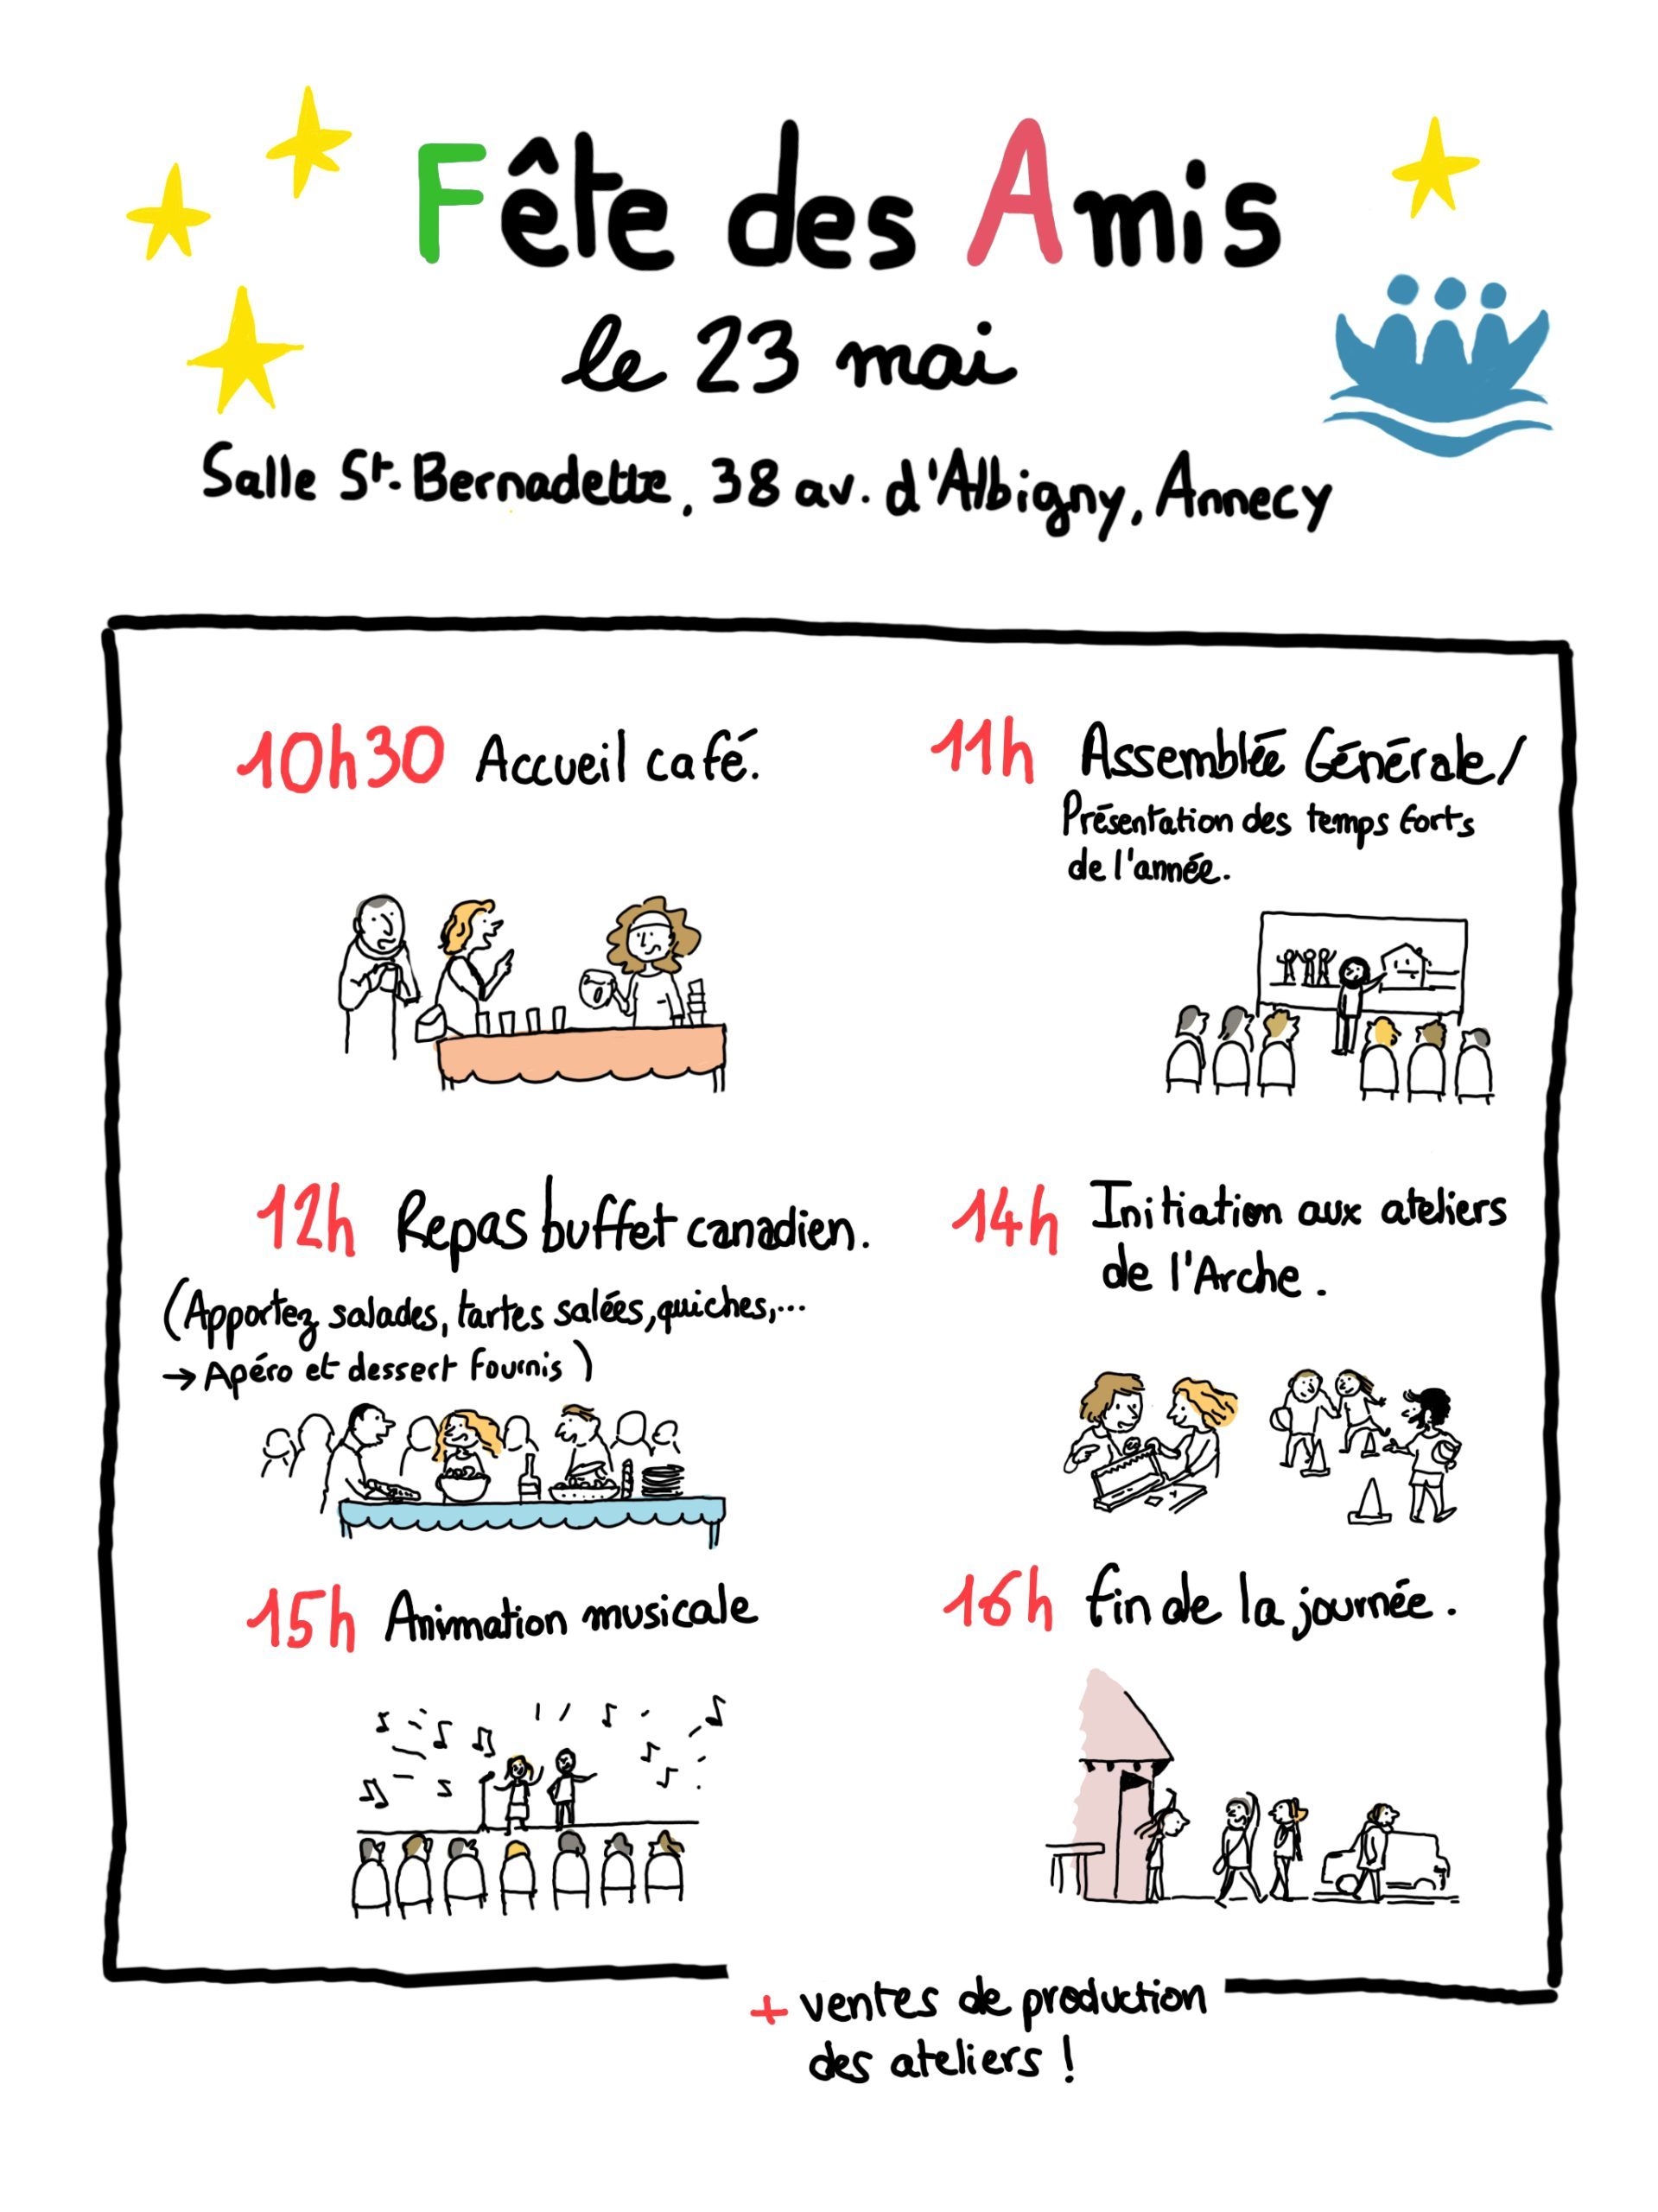 Fête des Amis
le 23 mai
Salle St-Bernadette, 38 av. d'Albigny, Annecy
10h30 Accueil café.
11h Assemblée Générale/
Présentation des temps forts
de l'année.
12h Repas buffet canadien.
(Apportez salades, tartes salées, quiches,...
→ Apéro et dessert fournis)
14h Initiation aux ateliers
de l'Arche.
15h Animation musicale
16h fin de la journée.
+ ventes de production
des ateliers !